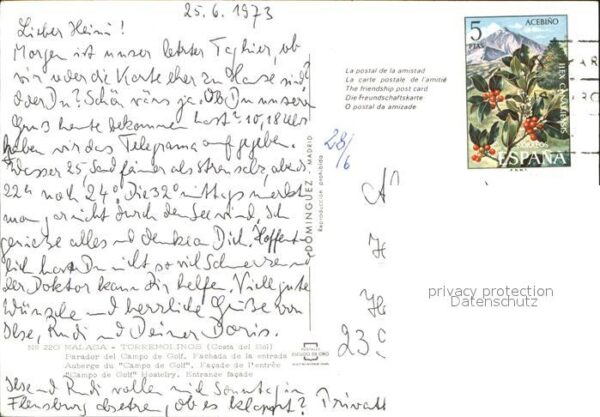 25.6.1973
Lieber Heini!
Morgen ist unser letzter Tag hier, ob
wir oder die Karte eher zu Hause sind?
Oder Du? Schön wärs ja. Ob Du unseren
Gruß heute bekommen hast? 10,18 Uhr
haben wir das Telegramm aufgegeben.
Wasser 25, Sand feiner als Streusalz, abends
22h noch 24°. Die 32° mittags merkt
man gar nicht durch den Seewind. Ich
genieße alles und denke an Dich. Hoffent-
lich hast Du nicht so viel Schmerzen und
der Doktor kann Dir helfen. Viele gute
Wünsche und herzliche Grüße von
Ilse, Rudi und Deiner Doris.
Nº 220 MALAGA - TORREMOLINOS (Costa del Sol)
Parador del Campo de Golf. Fachada de la entrada
Auberge du "Campo de Golf". Façade de l'entrée
"Campo de Golf" Hostelry. Entrance façade
Ilse und Rudi wollen mich Sonntag in
Flensburg absetzen, ob es klappt? Privatt
DOMINGUEZ
MADRID
Reproducción prohibida
La postal de la amistad
La carte postale de l'amitié
The friendship post card
Die Freundschaftskarte
O postal da amizade
28/6
5
PTAS
ACEBIÑO
CORREOS
ESPAÑA
F.N.M.T.
POSTALES
ESCUDO DE ORO
privacy protection
Datenschutz